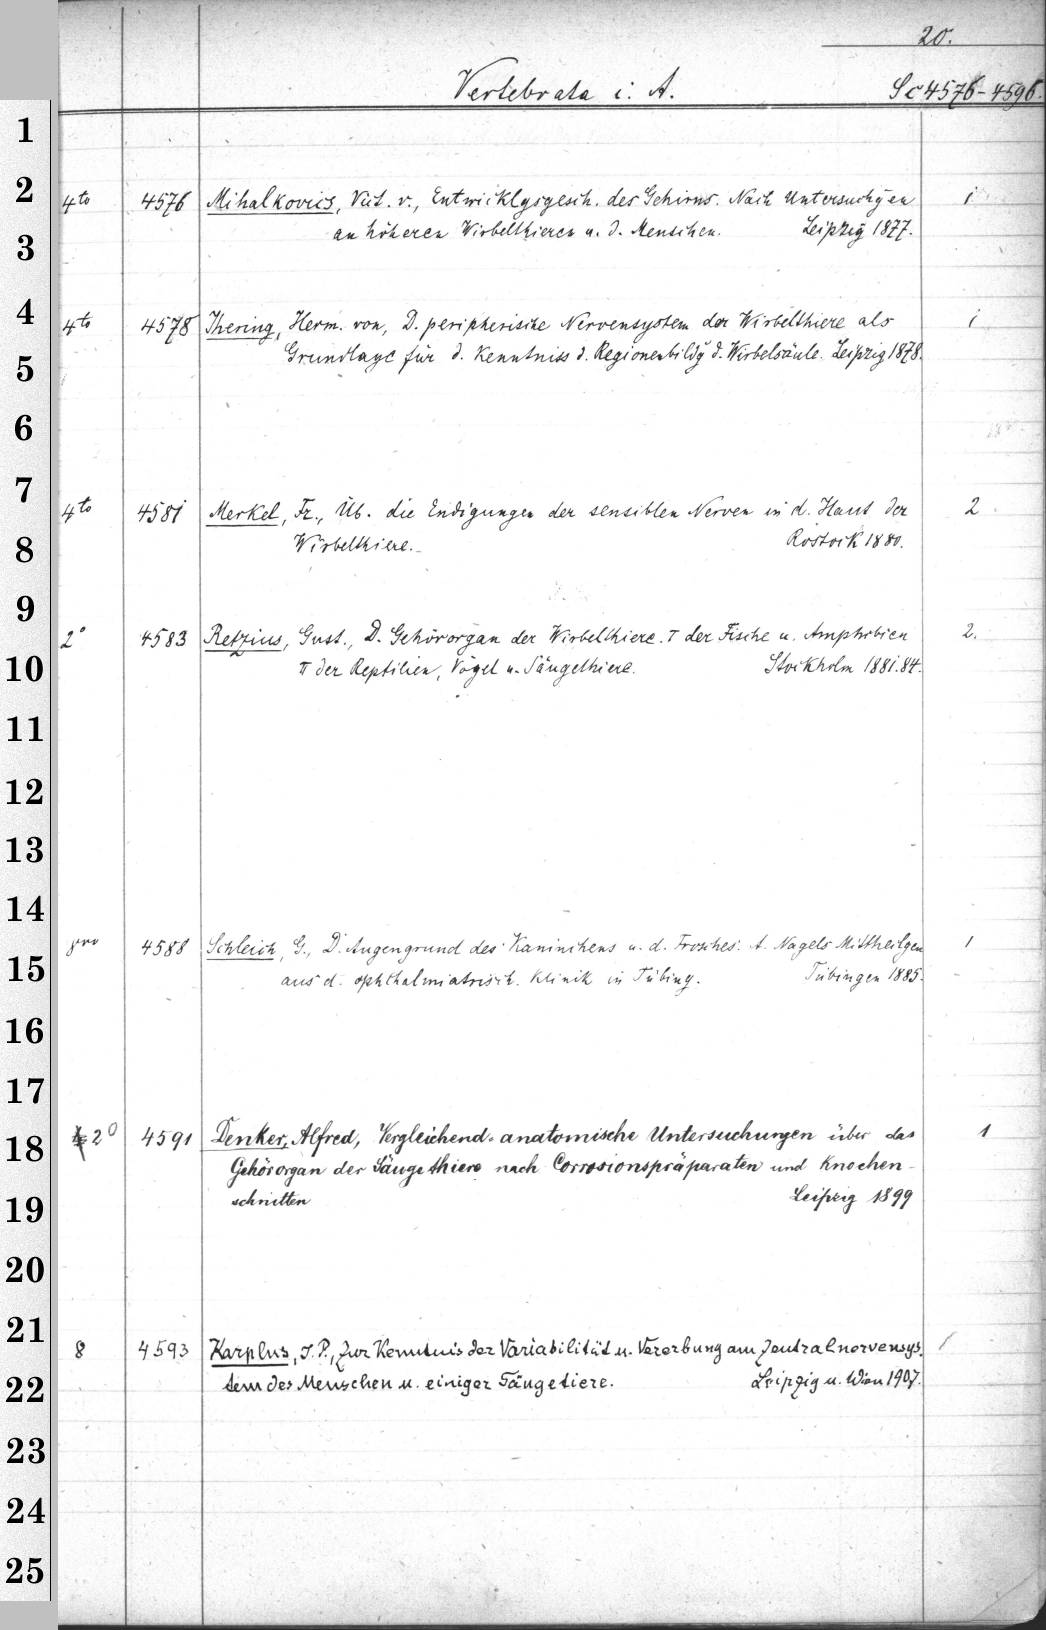 20.
Vertebrata i. A. Sc 4576-4596.
1
2
4to 4576 Mihalkovics, Vict. v., Entwicklgsgesch. des Gehirns. Nach Untersuchgen 1
3
an höheren Wirbelthieren u. d. Menschen. Leipzig 1877.
4
4to 4578 Jhering, Herm. von, D. peripherische Nervensystem der Wirbelthiere als 1
5
Grundlage für d. Kenntniss d. Regionenbildg d. Wirbelsäule. Leipzig 1878.
6
7
4to 4581 Merkel, Fr., Üb. die Endigungen der sensiblen Nerven in d. Haut der 2
8
Wirbelthiere. Rostock 1880.
9
2° 4583 Retzius, Gust., D. Gehörorgan der Wirbelthiere. I der Fische u. Amphibien 2.
10
II der Reptilien, Vögel u. Säugethiere. Stockholm 1881.84.
11
12
13
14
8vo 4588 Schleich, G., D. Augengrund des Kaninchens u. d. Frosches. A. Nagels Mittheilgen 1
15
aus d. ophthalmiatrisch. Klinik in Tübing. Tübingen 1885.
16
17
2° 4591 Denker, Alfred, Vergleichend-anatomische Untersuchungen über das 1
18
Gehörorgan der Säugethiere nach Corrosionspräparaten und Knochen-
19
schnitten Leipzig 1899
20
21
8 4593 Karplus, J. P., Zur Kenntnis der Variabilität u. Vererbung am Zentralnervensys- 1
22
tem des Menschen u. einiger Säugetiere. Leipzig u. Wien 1907.
23
24
25